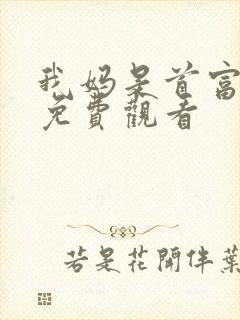 我妈是首富
免費觀看
若是花開伴葉